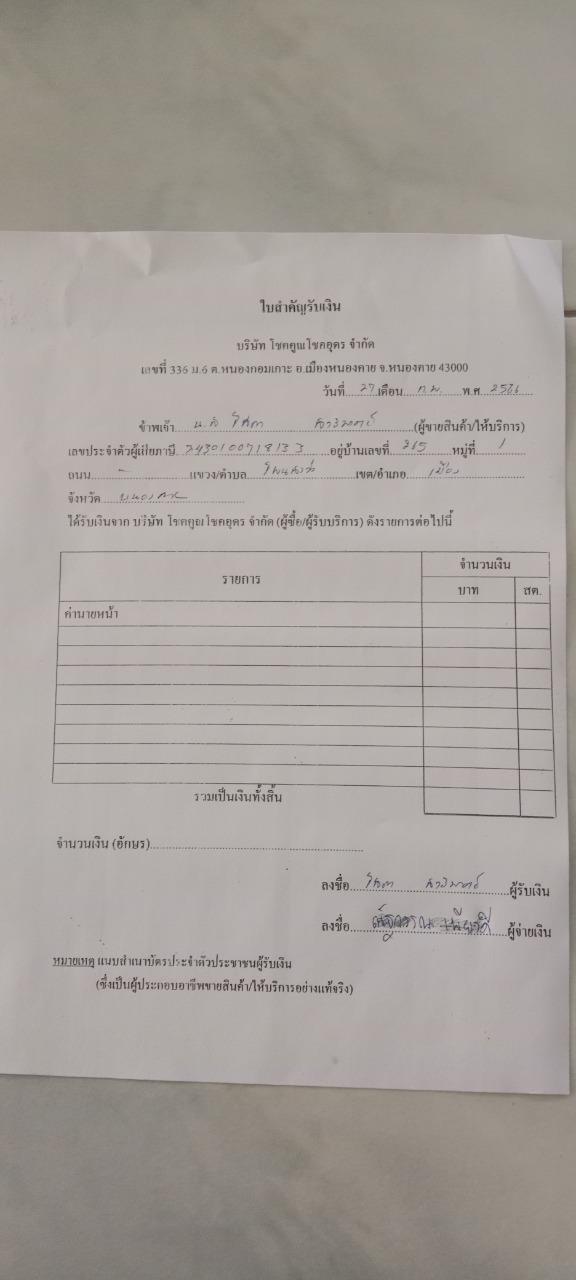 ใบสำคัญรับเงิน
บริษัท โชคคูณโชคอุดร จำกัด
เลขที่ 336 ม.6 ต.หนองกอมเกาะ อ.เมืองหนองคาย จ.หนองคาย 43000
วันที่ 27 เดือน ก.พ. พ.ศ. 2566
ข้าพเจ้า น.ส (ผู้ขายสินค้า/ให้บริการ)
เลขประจำตัวผู้เสียภาษี อยู่บ้านเลขที่ 265 หมู่ที่ 1
ถนน - แขวง/ตำบล เขต/อำเภอ เมือง
จังหวัด หนองคาย
ได้รับเงินจาก บริษัท โชคคูณโชคอุดร จำกัด (ผู้ซื้อ/ผู้รับบริการ) ดังรายการต่อไปนี้
รายการ จำนวนเงิน
บาท สต.
ค่านายหน้า
รวมเป็นเงินทั้งสิ้น
จำนวนเงิน (อักษร)
ลงชื่อ ผู้รับเงิน
ลงชื่อ ผู้จ่ายเงิน
หมายเหตุ แนบสำเนาบัตรประจำตัวประชาชนผู้รับเงิน
(ซึ่งเป็นผู้ประกอบอาชีพขายสินค้า/ให้บริการอย่างแท้จริง)